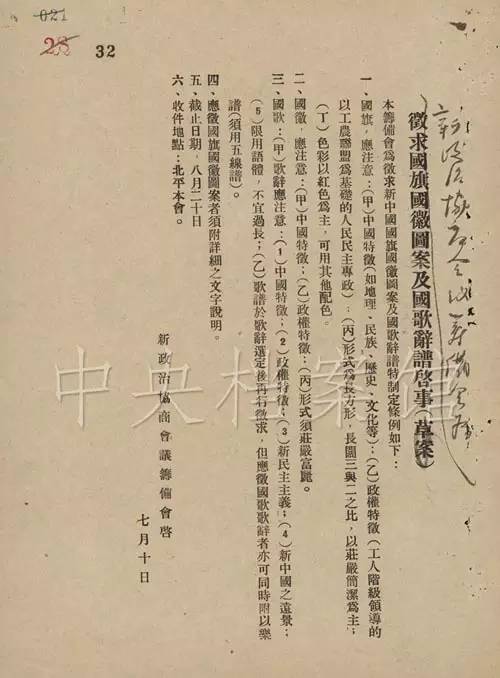 021
25
32
徵求國旗國徽圖案及國歌辭譜啓事（草案）
本籌備會爲徵求新中國國旗國徽圖案及國歌辭譜特制定條例如下：
一、國旗，應注意：（甲）中國特徵（如地理、民族、歷史、文化等）；（乙）政權特徵（工人階級領導的
以工農聯盟爲基礎的人民民主專政）；（丙）形式爲長方形，長闊三與二之比，以莊嚴簡潔爲主；
（丁）色彩以紅色爲主，可用其他配色。
二、國徽，應注意：（甲）中國特徵；（乙）政權特徵；（丙）形式須莊嚴富麗。
三、國歌：（甲）歌辭應注意：（1）中國特徵；（2）政權特徵；（3）新民主主義；（4）新中國之遠景；
（5）限用語體，不宜過長；（乙）歌譜於歌辭選定後再行徵求，但應徵國歌歌辭者亦可同時附以樂
譜（須用五線譜）。
四、應徵國旗國徽圖案者須附詳細之文字說明。
五、截止日期，八月二十日
六、收件地點：北平本會。
新政治協商會議籌備會啓
七月十日
中央档案馆